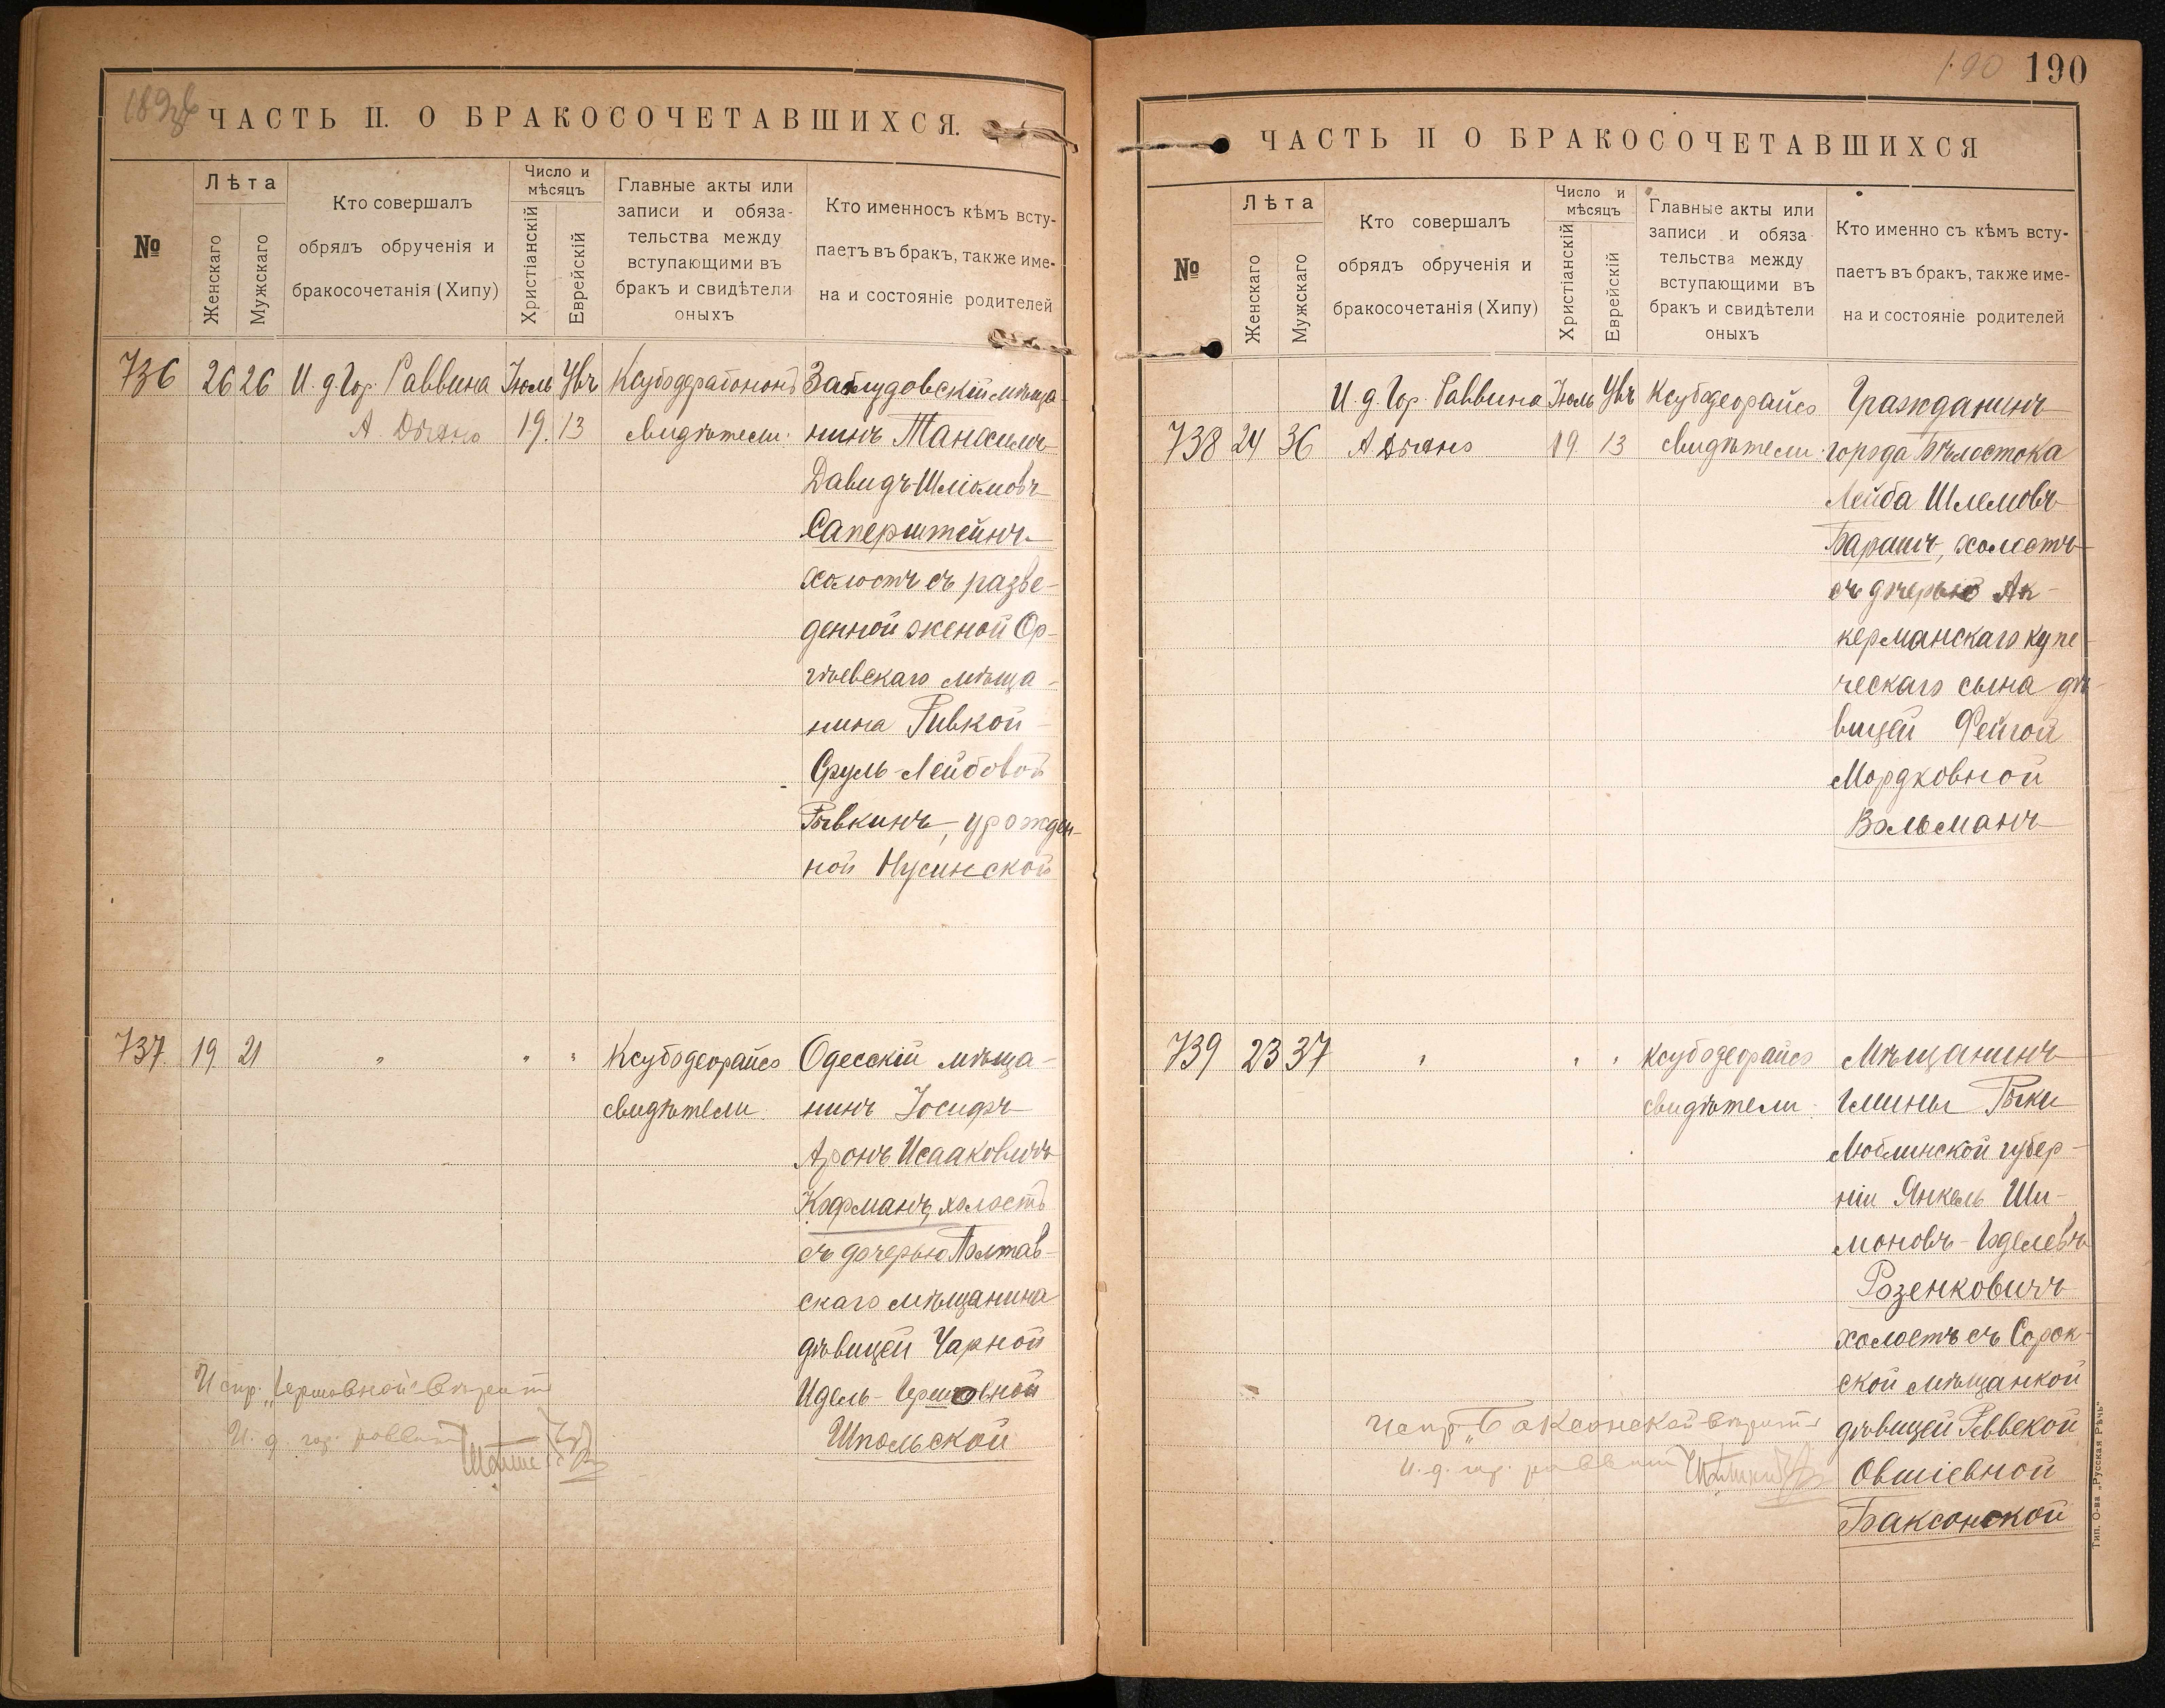 ЧАСТЬ II. О БРАКОСОЧЕТАВШИХСЯ.
№
Лѣта
Женскаго
Мужскаго
Кто совершалъ
обрядъ обрученія и
бракосочетанія (Хипу)
Число и
мѣсяцъ
Христіанскій
Еврейскій
Главные акты или
записи и обяза-
тельства между
вступающими въ
бракъ и свидѣтели
оныхъ
Кто именносъ кѣмъ всту-
паетъ въ бракъ, также име-
на и состояніе родителей
736 26 26 И. д. Гор. Раввина Іюль
А. 19. 13 свидѣтели.
Заблудовскій мѣща-
нинъ Танхилъ
Давидъ-Шліомовъ
Саперштейнъ
холостъ съ разве-
денной женой Ор-
гѣевскаго мѣща-
нина Ривкой
Сруль-Лейбовой
Рывкинъ, урожден-
ной Нусинской
737 19 21 " " " Ксубодеорайсо
свидѣтели
Одесскій мѣща-
нинъ Іосифъ
Аронъ Исааковичъ
Кофманъ, холостъ
съ дочерью Полтав-
скаго мѣщанина
дѣвицей Чарной
Идель-Гершовной
Шпольской
Испр. „Гершовной" вѣрить
И. д. гор. раввина
190
190
ЧАСТЬ II О БРАКОСОЧЕТАВШИХСЯ
№
Лѣта
Женскаго
Мужскаго
Кто совершалъ
обрядъ обрученія и
бракосочетанія (Хипу)
Число и
мѣсяцъ
Христіанскій
Еврейскій
Главные акты или
записи и обяза
тельства между
вступающими въ
бракъ и свидѣтели
оныхъ
Кто именно съ кѣмъ всту-
паетъ въ бракъ, также име-
на и состояніе родителей
И. д. Гор. Раввина Іюль Ксубодеорайсо
738 24 36 А 19 13 свидѣтели.
Гражданинъ
города Бѣлостока
Лейба Шлемовъ
Барашъ, холостъ
съ дочерью Ак-
керманскаго купе-
ческаго сына дѣ-
вицей Фейгой
Мордковной
Вольманъ
739 23 37 " " " Ксубодеорайсо
свидѣтели.
Мѣщанинъ
гмины Рыки
Люблинской губер-
ніи Янкель Ши-
моновъ-Юделевъ
Розенковичъ
холостъ съ Сорок-
ской мѣщанкой
дѣвицей Ревекой
Овшіевной
Баксонской
Испр. „Баксонской" вѣрить
И. д. гор. раввина
Тип. О-ва „Русская Рѣчь"